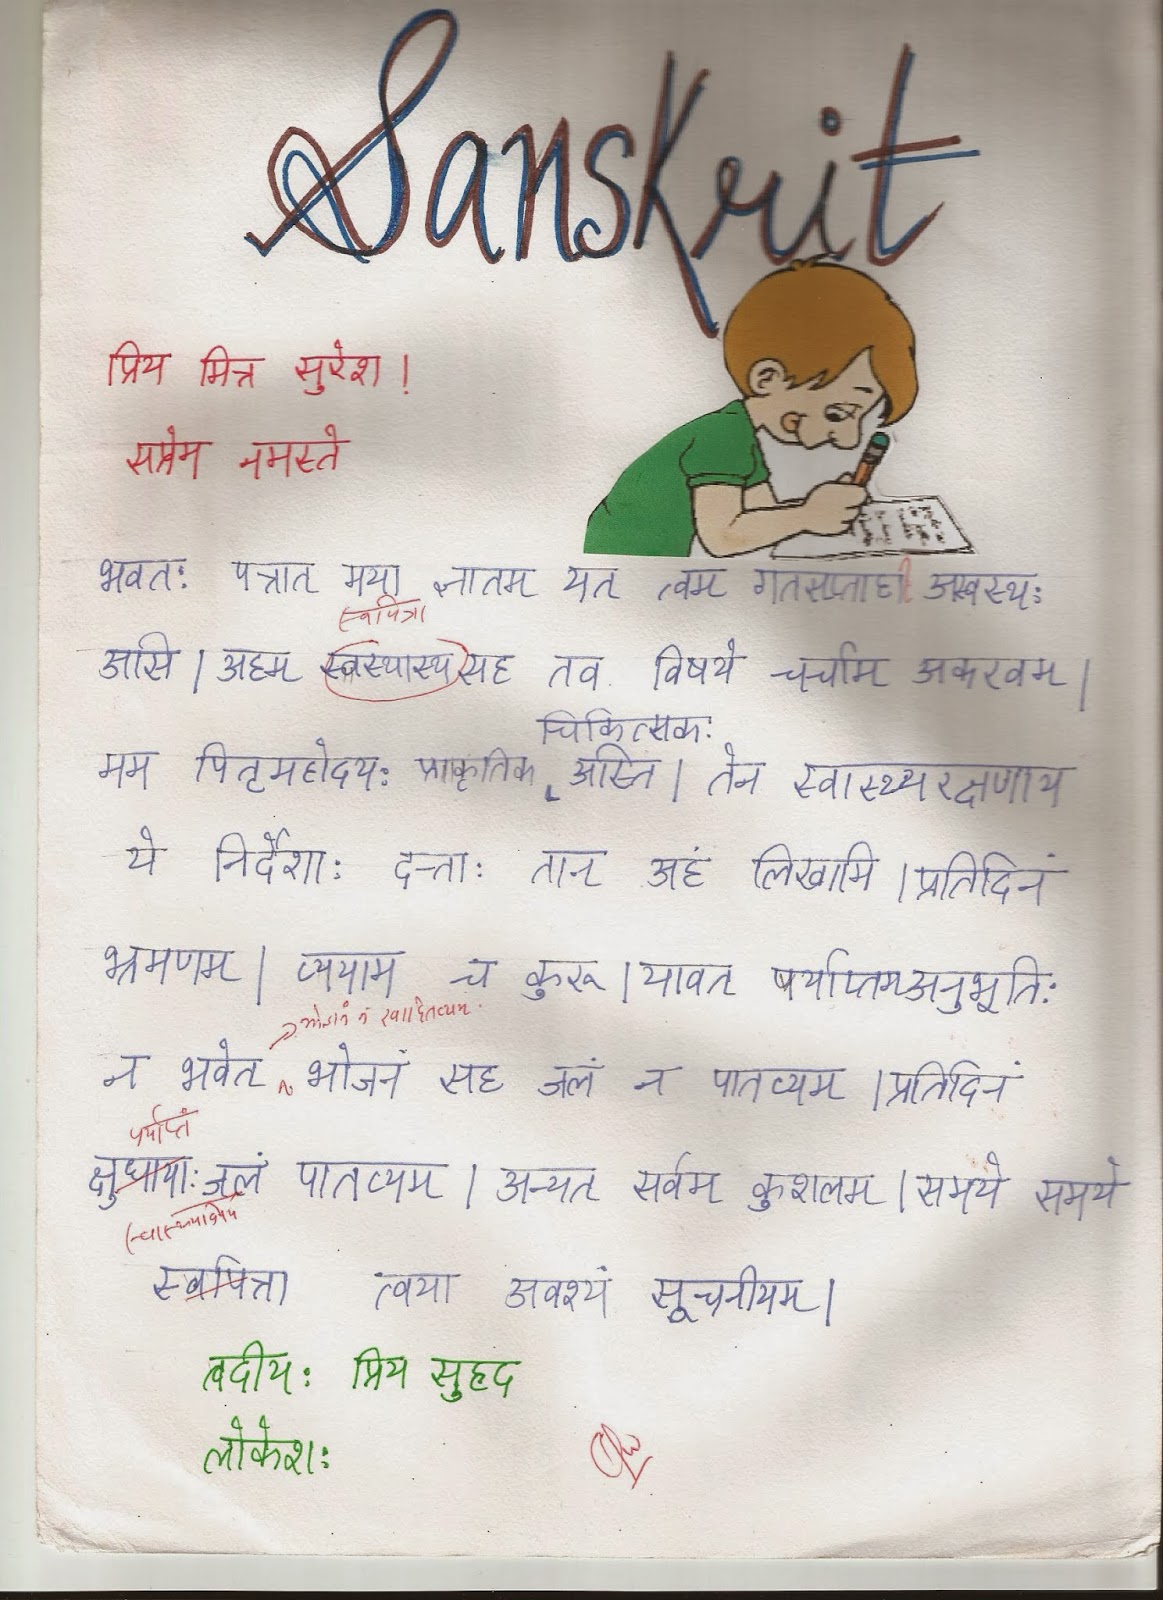 Sanskrit
प्रिय मित्र सुरेश!
सप्रेम नमस्ते
भवतः पत्रात मया ज्ञातम यत त्वम गतसप्ताहे अस्वस्थः
स्वपित्रा
असि । अहम स्वस्थास्थ सह तव विषये चर्चाम अकरवम ।
चिकित्सकः
मम पितृमहोदयः प्राकृतिक अस्ति । तेन स्वास्थ्यरक्षणाय
ये निर्देशाः दत्ताः तान अहं लिखामि । प्रतिदिनं
भ्रमणम । व्ययाम च कुरू । यावत पर्याप्तम अनुभूतिः
भोजनं न
न भवेत भोजनं सह जलं न पातव्यम । प्रतिदिनं
पर्याप्तं
क्षुधायाः जलं पातव्यम । अन्यत सर्वम कुशलम । समये समये
स्वपित्रा त्वया अवश्यं सूचनीयम ।
त्वदीयः प्रिय सुहृद
लोकेशः